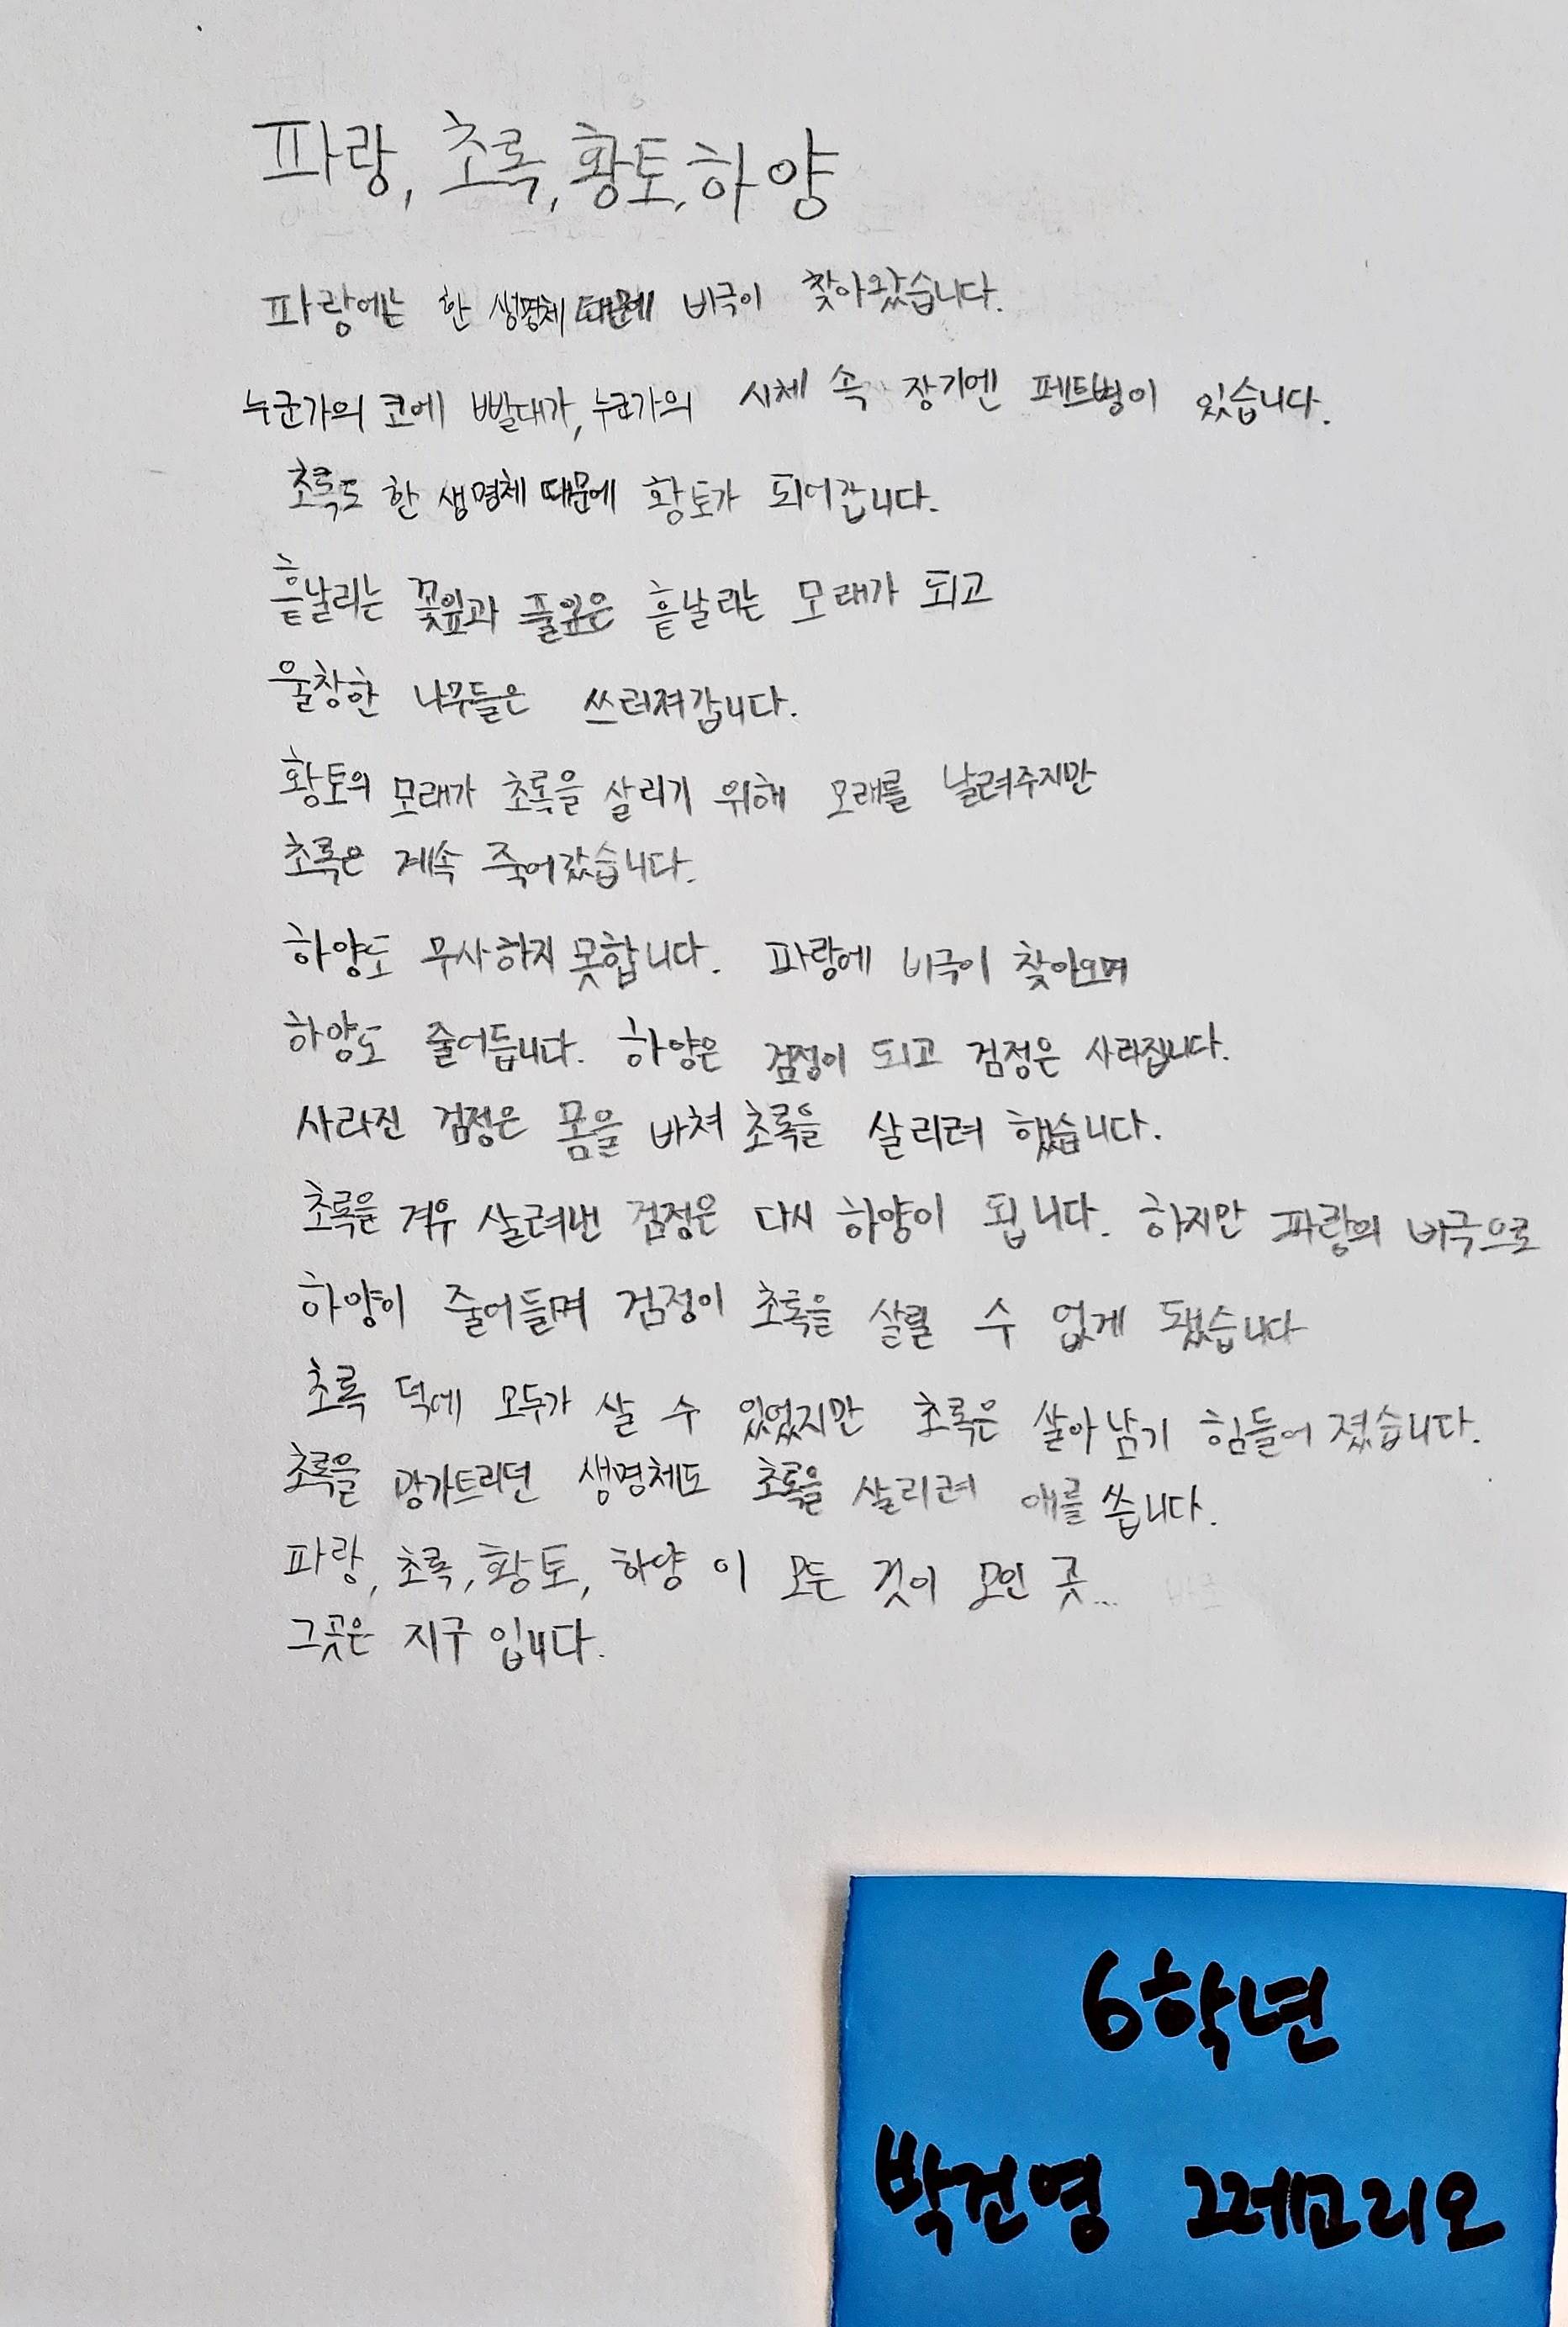 파랑, 초록, 황토, 하양
파랑에는 한 생명체 때문에 비극이 찾아왔습니다.
누군가의 코에 빨대가, 누군가의 시체 속 장기엔 페트병이 있습니다.
초록도 한 생명체 때문에 황토가 되어갑니다.
흩날리는 꽃잎과 풀잎은 흩날리는 모래가 되고
울창한 나무들은 쓰러져갑니다.
황토의 모래가 초록을 살리기 위해 모래를 날려주지만
초록은 계속 죽어갔습니다.
하양도 무사하지 못합니다. 파랑에 비극이 찾아오며
하양도 줄어듭니다. 하양은 검정이 되고 검정은 사라집니다.
사라진 검정은 몸을 바쳐 초록을 살리려 했습니다.
초록을 겨우 살려낸 검정은 다시 하양이 됩니다. 하지만 파랑의 비극으로
하양이 줄어들며 검정이 초록을 살릴 수 없게 됐습니다
초록 덕에 모두가 살 수 있었지만 초록은 살아남기 힘들어 졌습니다.
초록을 망가트리던 생명체도 초록을 살리려 애를 씁니다.
파랑, 초록, 황토, 하양 이 모든 것이 모인 곳...
그곳은 지구 입니다.
6학년
박건영 그레고리오